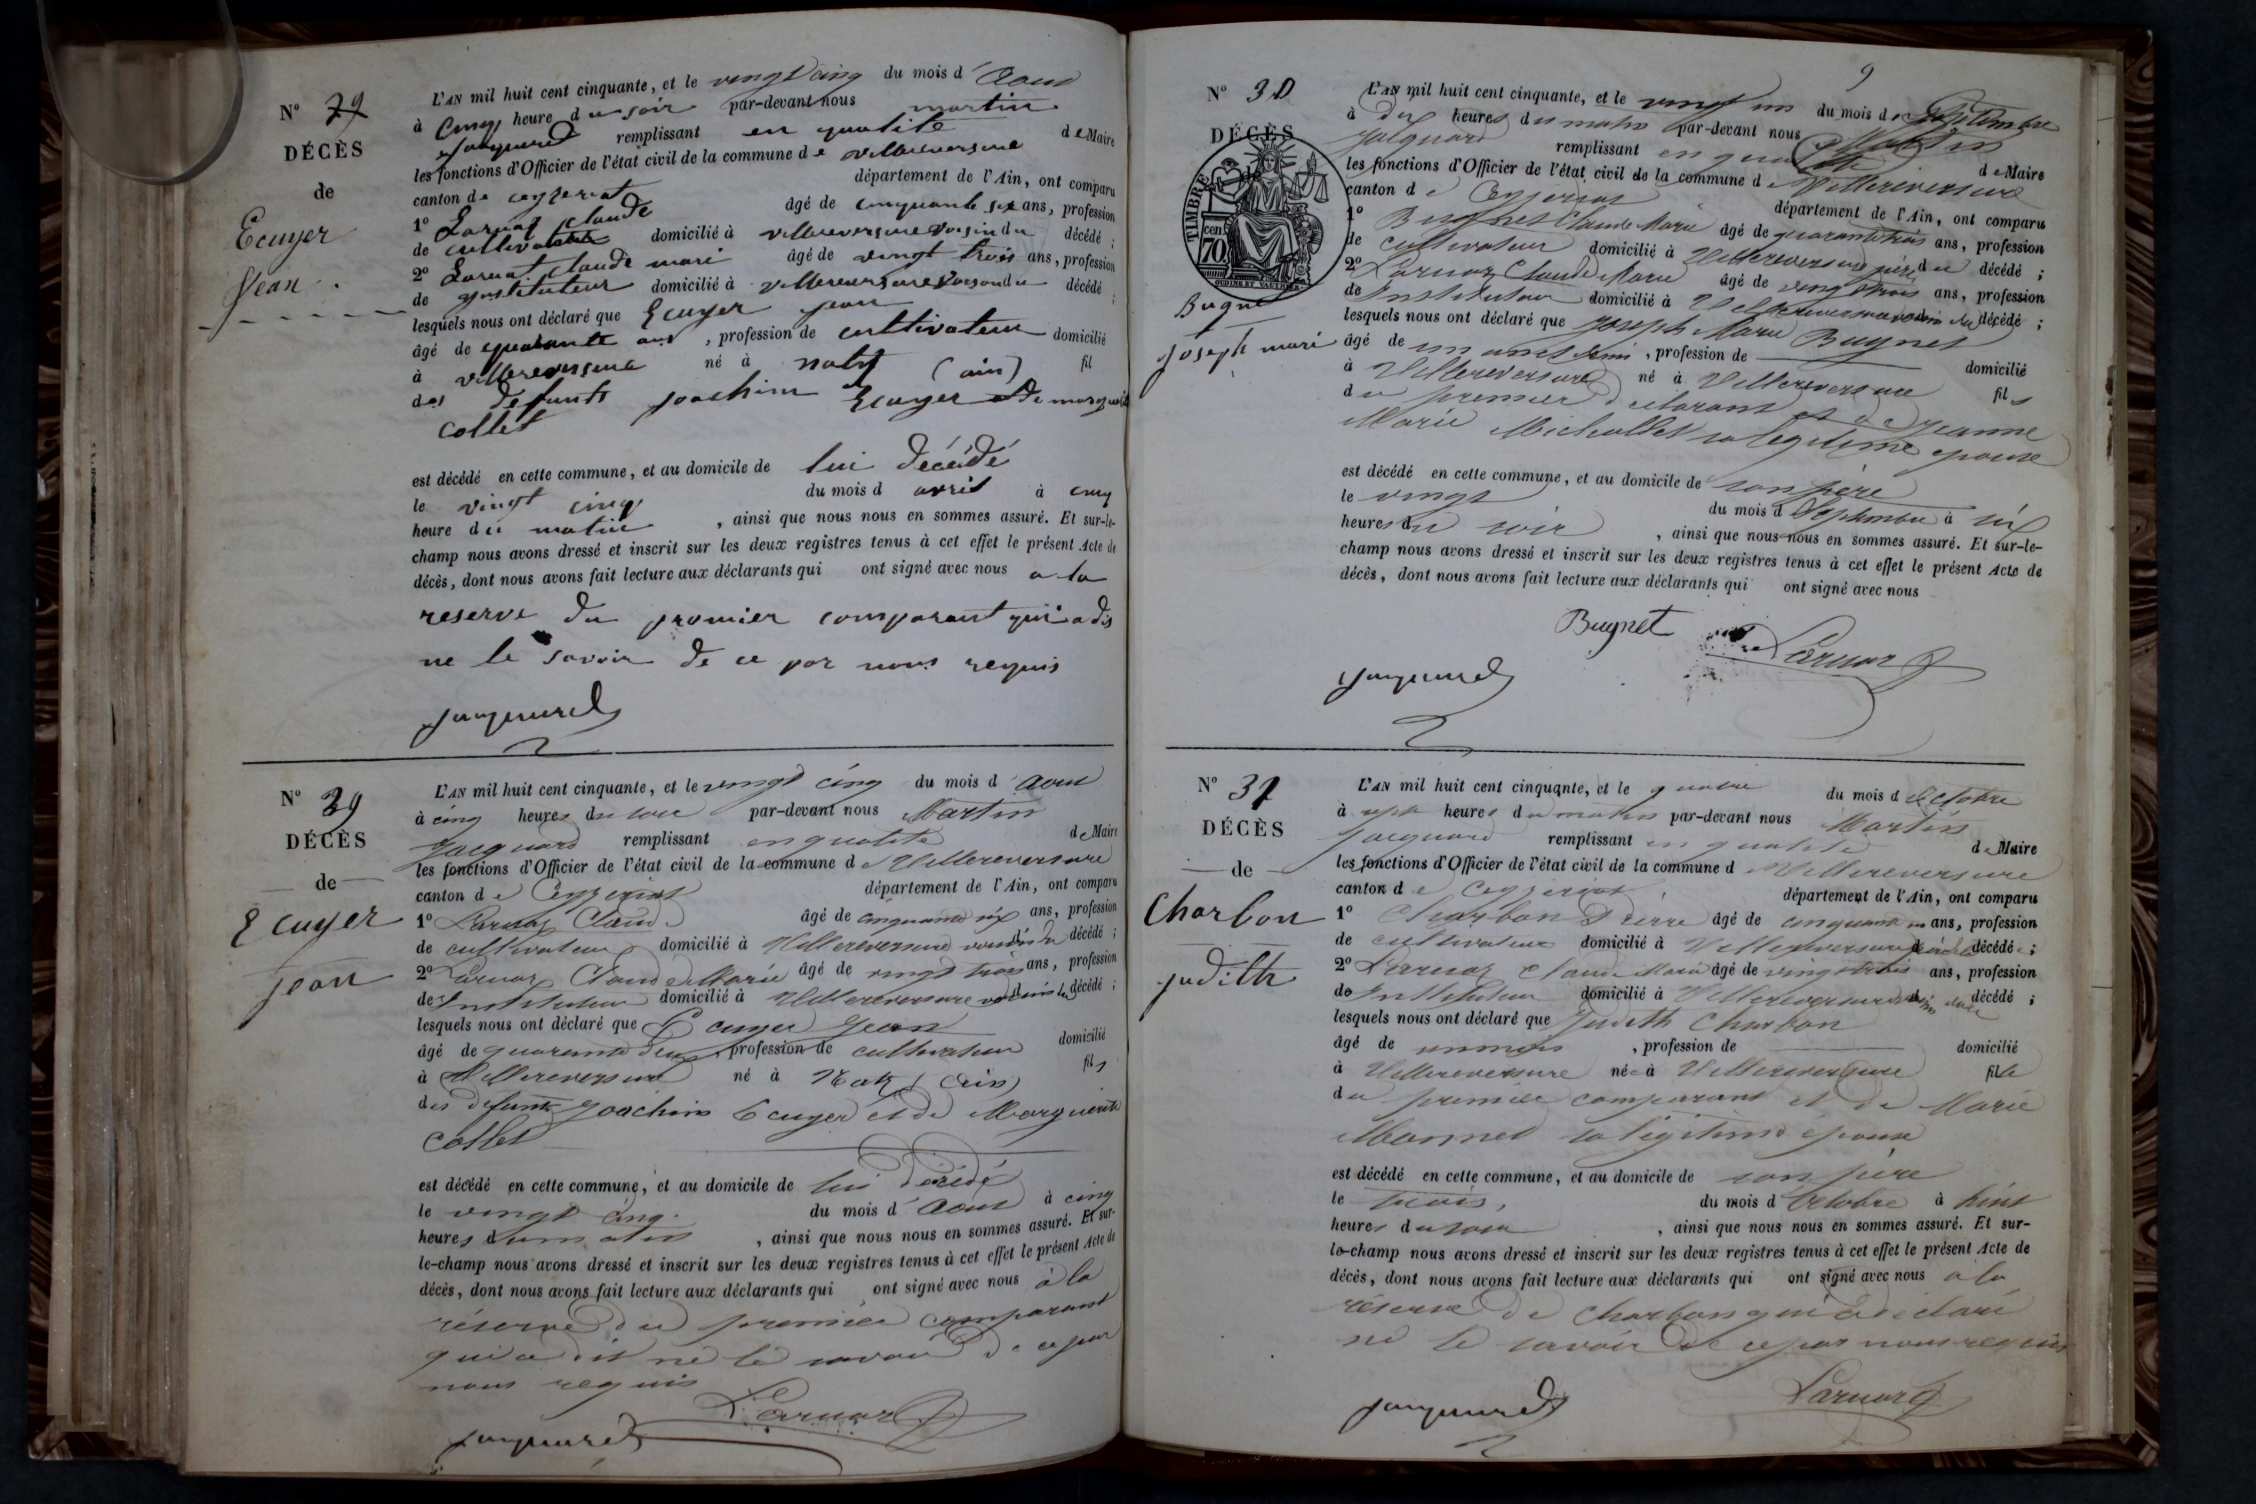 N° 29
DÉCÈS
de
Ecuyer
Jean
L'AN mil huit cent cinquante, et le vingt cinq du mois d'aout
à cinq heure du soir par-devant nous martin
Jacquard remplissant en qualité de Maire
les fonctions d'Officier de l'état civil de la commune de villereversure
canton de ceyzeriat département de l'Ain, ont comparu
1° Larnaz claude âgé de cinquante six ans, profession
de cultivateur domicilié à villereversure voisin du décédé ;
2° Larnaz claude mari âgé de vingt trois ans, profession
de instituteur domicilié à villereversure voisin du décédé ;
lesquels nous ont déclaré que Ecuyer jean
âgé de quarante ans, profession de cultivateur domicilié
à villereversure né à (ain) fil
des defunts joachim Ecuyer et de marguerite
collet
est décédé en cette commune, et au domicile de lui décédé
le vingt cinq du mois d avril à cinq
heure du matin, ainsi que nous nous en sommes assuré. Et sur-le-
champ nous avons dressé et inscrit sur les deux registres tenus à cet effet le présent Acte de
décès, dont nous avons fait lecture aux déclarants qui ont signé avec nous a la
reserve du premier comparant qui a dit
ne le savoir de ce par nous requis
Jacquard
N° 29
DÉCÈS
de
Ecuyer
jean
L'AN mil huit cent cinquante, et le vingt cinq du mois d'aout
à cinq heures du soir par-devant nous Martin
Jacquard remplissant en qualité de Maire
les fonctions d'Officier de l'état civil de la commune de Villereversure
canton de Ceyzeriat département de l'Ain, ont comparu
1° Larnaz Claude âgé de cinquante six ans, profession
de cultivateur domicilié à Villereversure voisin du décédé ;
2° Larnaz Claude Marie âgé de vingt trois ans, profession
de Instituteur domicilié à Villereversure voisin du décédé ;
lesquels nous ont déclaré que Ecuyer Jean
âgé de quarante deux, profession de cultivateur domicilié
à Villereversure né à (Ain) fils
des defunts Joachim Ecuyer et de Marguerite
Collet
est décédé en cette commune, et au domicile de lui décédé
le vingt cinq du mois d'Aout à cinq
heures du matin, ainsi que nous nous en sommes assuré. Et sur-
le-champ nous avons dressé et inscrit sur les deux registres tenus à cet effet le présent Acte de
décès, dont nous avons fait lecture aux déclarants qui ont signé avec nous à la
réserve du premier comparant
qui a dit ne le savoir de ce par
nous requis
Larnaz
Jacquard
9
N° 30
DÉCÈS
TIMBRE
70 cen
OUDINE ET VAUTHIER
Bugnet
Joseph mari
L'AN mil huit cent cinquante, et le vingt un du mois de Septembre
à dix heures du matin par-devant nous Martin
Jacquard remplissant en qualité de Maire
les fonctions d'Officier de l'état civil de la commune de Villereversure
canton de Ceyzeriat département de l'Ain, ont comparu
1° Bugnet Claude Marie âgé de quarante trois ans, profession
de cultivateur domicilié à Villereversure père du décédé ;
2° Larnaz Claude Marie âgé de vingt trois ans, profession
de Instituteur domicilié à Villereversure voisin du décédé ;
lesquels nous ont déclaré que Joseph Marie Bugnet
âgé de un an et demi, profession de domicilié
à Villereversure né à Villereversure fils
du premier déclarant et de Jeanne
Marie Michallet sa légitime épouse
est décédé en cette commune, et au domicile de son père
le vingt du mois d Septembre à six
heures du soir, ainsi que nous nous en sommes assuré. Et sur-le-
champ nous avons dressé et inscrit sur les deux registres tenus à cet effet le présent Acte de
décès, dont nous avons fait lecture aux déclarants qui ont signé avec nous
Bugnet
Larnaz
Jacquard
N° 31
DÉCÈS
de
Charbon
judith
L'AN mil huit cent cinquante, et le quatre du mois d'Octobre
à sept heures du matin par-devant nous Martin
Jacquard remplissant en qualité de Maire
les fonctions d'Officier de l'état civil de la commune d Villereversure
canton de Ceyzeriat département de l'Ain, ont comparu
1° Charbon Pierre âgé de cinquante un ans, profession
de cultivateur domicilié à Villereversure père de la décédée ;
2° Larnaz Claude Marie âgé de vingt trois ans, profession
de Instituteur domicilié à Villereversure voisin de la décédé ;
lesquels nous ont déclaré que Judith Charbon
âgé de un mois, profession de domicilié
à Villereversure née à Villereversure fille
du premier comparant et de Marie
Monnet sa légitime épouse
est décédé en cette commune, et au domicile de son père
le trois, du mois d'Octobre à huit
heures du soir, ainsi que nous nous en sommes assuré. Et sur-
le-champ nous avons dressé et inscrit sur les deux registres tenus à cet effet le présent Acte de
décès, dont nous avons fait lecture aux déclarants qui ont signé avec nous à la
réserve de Charbon qui a déclaré
ne le savoir de ce par nous requis
Larnaz
Jacquard